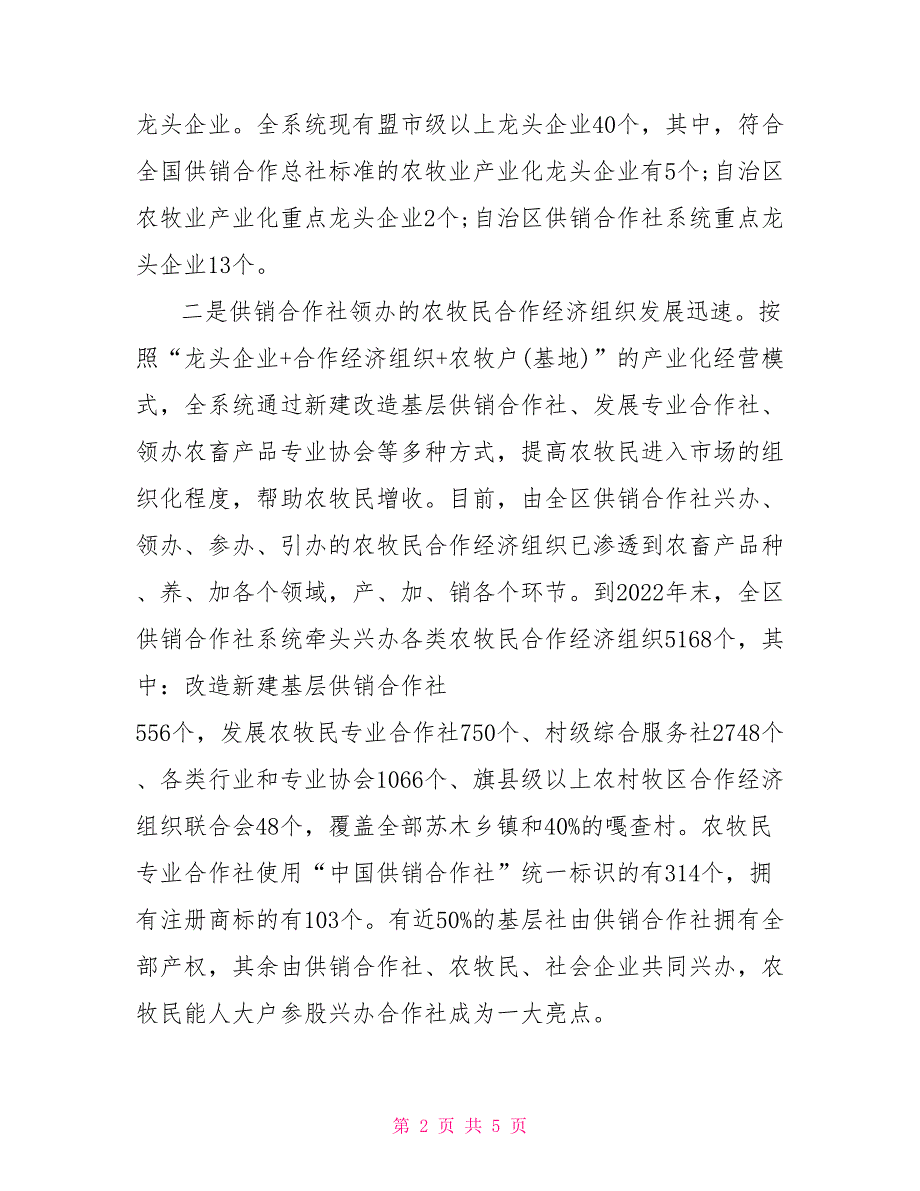 龙头企业。全系统现有盟市级以上龙头企业40个，其中，符合
全国供销合作总社标准的农牧业产业化龙头企业有5个;自治区
农牧业产业化重点龙头企业2个;自治区供销合作社系统重点龙
头企业13个。
二是供销合作社领办的农牧民合作经济组织发展迅速。按
照“龙头企业+合作经济组织+农牧户(基地)”的产业化经营模
式，全系统通过新建改造基层供销合作社、发展专业合作社、
领办农畜产品专业协会等多种方式，提高农牧民进入市场的组
织化程度，帮助农牧民增收。目前，由全区供销合作社兴办、
领办、参办、引办的农牧民合作经济组织已渗透到农畜产品种
、养、加各个领域，产、加、销各个环节。到2022年末，全区
供销合作社系统牵头兴办各类农牧民合作经济组织5168个，其
中：改造新建基层供销合作社
556个，发展农牧民专业合作社750个、村级综合服务社2748个
、各类行业和专业协会1066个、旗县级以上农村牧区合作经济
组织联合会48个，覆盖全部苏木乡镇和40%的嘎查村。农牧民
专业合作社使用“中国供销合作社”统一标识的有314个，拥
有注册商标的有103个。有近50%的基层社由供销合作社拥有全
部产权，其余由供销合作社、农牧民、社会企业共同兴办，农
牧民能人大户参股兴办合作社成为一大亮点。
第 2 页 共 5 页